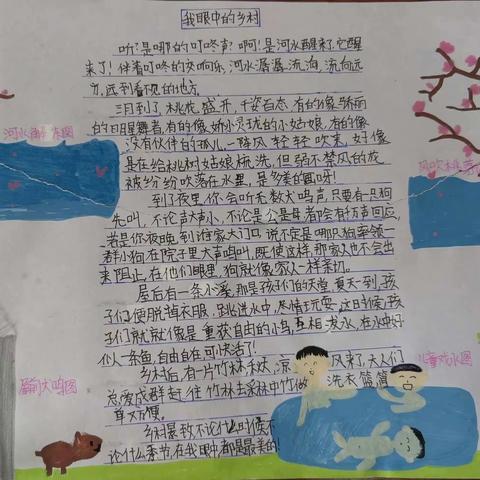 我眼中的乡村
听?是哪的叮咚声?啊!是河水醒来了,它醒
来了!伴着叮咚的交响乐,河水潺潺流淌,流向远
方,远到看不见的地方。
三月到了,桃花盛开,千姿百态,有的像娇丽
的明星舞者,有的像娇小玲珑的小姑娘,有的像
没有伙伴的孤儿,一阵风轻轻吹来,好像
是在给桃树姑娘梳洗,但弱不禁风的花
被纷纷吹落在水里,是多美的画呀!
到了夜里,你会听无数犬鸣声,只要有一只狗
先叫,不论声大声小,不论是公是母者都会有千万声回应,
若是你夜晚到谁家大门口,说不定是哪只狗率领一
群小狗在院子里大声鸣叫,既使这样,那家人也不会出
来阻止,在他们眼里,狗就像家人一样亲切。
屋后有一条小溪,那是孩子们的天堂,夏天一到,孩
子们便脱掉衣服,跳进水中,尽情玩耍,这时候,孩
子们就就像是重获自由的小鸟,互相泼水,在水中好
似一条鱼,自由自在,可快活了!
乡村后,有一片竹林,每次,凉 风来了,大人们
总爱成群赶往竹林去采林中竹做 洗衣篮,简
单又方便。
乡村景致不论什么时候,不
论什么季节,在我眼中都是最美的!
河水 图
风吹桃芽
犬鸣图
儿童戏水图